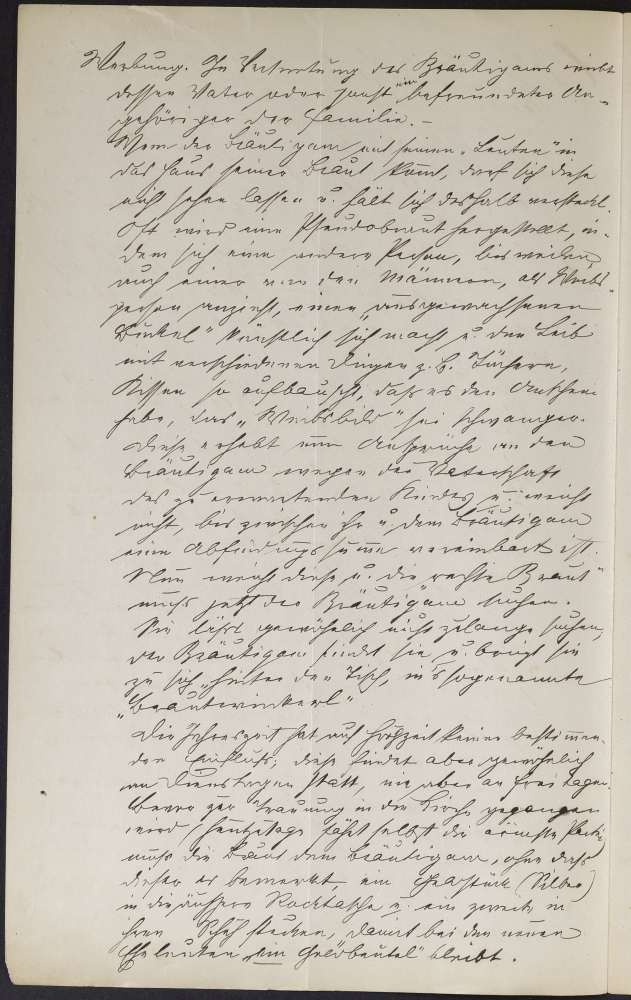 Werbung. In Vertretung des Bräutigams wirbt
dessen Vater oder sonst ein befreundeter An-
gehöriger der Familie. –
Wenn der Bräutigam mit seinen „Leuten" in
das Haus seiner Braut kommt, darf sich diese
nicht sehen lassen u. hält sich deshalb versteckt.
Oft wird eine Pseudobraut hergestellt, in-
dem sich eine andere Person, bisweilen
auch einer von den Männern, als Weibs-
person anzieht, einen „ausgewachsenen
Buckel" künstlich sich macht u. den Leib
mit verschiedenen Dingen z. B. Tüchern,
Kissen so aufbauscht, daß es den Anschein
habe, das „Weibsbild" sei schwanger.
Diese erhebt nun Ansprüche an den
Bräutigam wegen der Vaterschaft
des zu erwartenden Kindes u. weicht
nicht, bis zwischen ihr u. dem Bräutigam
eine Abfindungssumme vereinbart ist.
Nun weicht diese u. die „rechte Braut"
muß jetzt der Bräutigam suchen.
Sie läßt gewöhnlich nicht zu lange suchen,
der Bräutigam findet sie u. bringt sie
zu sich „hinter den Tisch, in's sogenannte
„Brautwinkerl"
Die Jahreszeit hat auf Hochzeit keinen bestimmen-
den Einfluß; diese findet aber gewöhnlich
an Dienstagen statt, nie aber an Freitagen.
Bevor zur Trauung in die Kirche gegangen
wird (heutzutage fährt selbst die ärmste Partie)
muß die Braut dem Bräutigam, ohne daß
dieser es bemerkt, ein Geldstück (Silber)
in die äußere Rocktasche u. ein zweites in
ihren Schuh stecken, damit bei den neuen
Eheleuten „im Geldbeutel" bleibt.